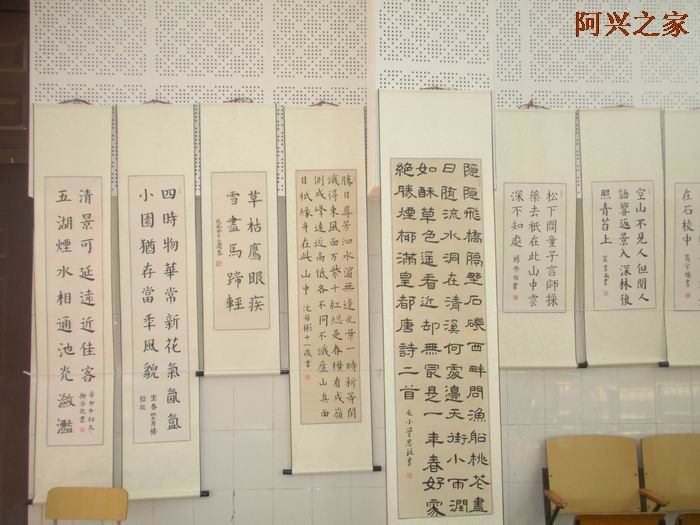 阿兴之家
清景可延遠近佳客
五湖煙水相通池炗瀲灩
辛卯年初冬
四時物華常新花氣氤氳
小園猶存當季風貌
草枯鷹眼疾
雪盡馬蹄輕
勝日尋芳泗水濱無邊光景一時新等閒
識得東風面萬紫千紅總是春橫看成嶺
側成峰遠近高低各不同不識廬山真面
目祇緣身在此山中 彬十一歲書
隱隱飛橋隔埜石磯西畔問漁船桃花盡
日随流水洞在清溪何處邊天街小雨潤
如酥草色遥看近却無最是一年春好處
絕勝煙柳滿皇都唐詩二首
松下問童子言師採
藥去祇在此山中雲
深不知處
空山不見人但聞人
語響返景入深林復
照青苔上
在石稜中